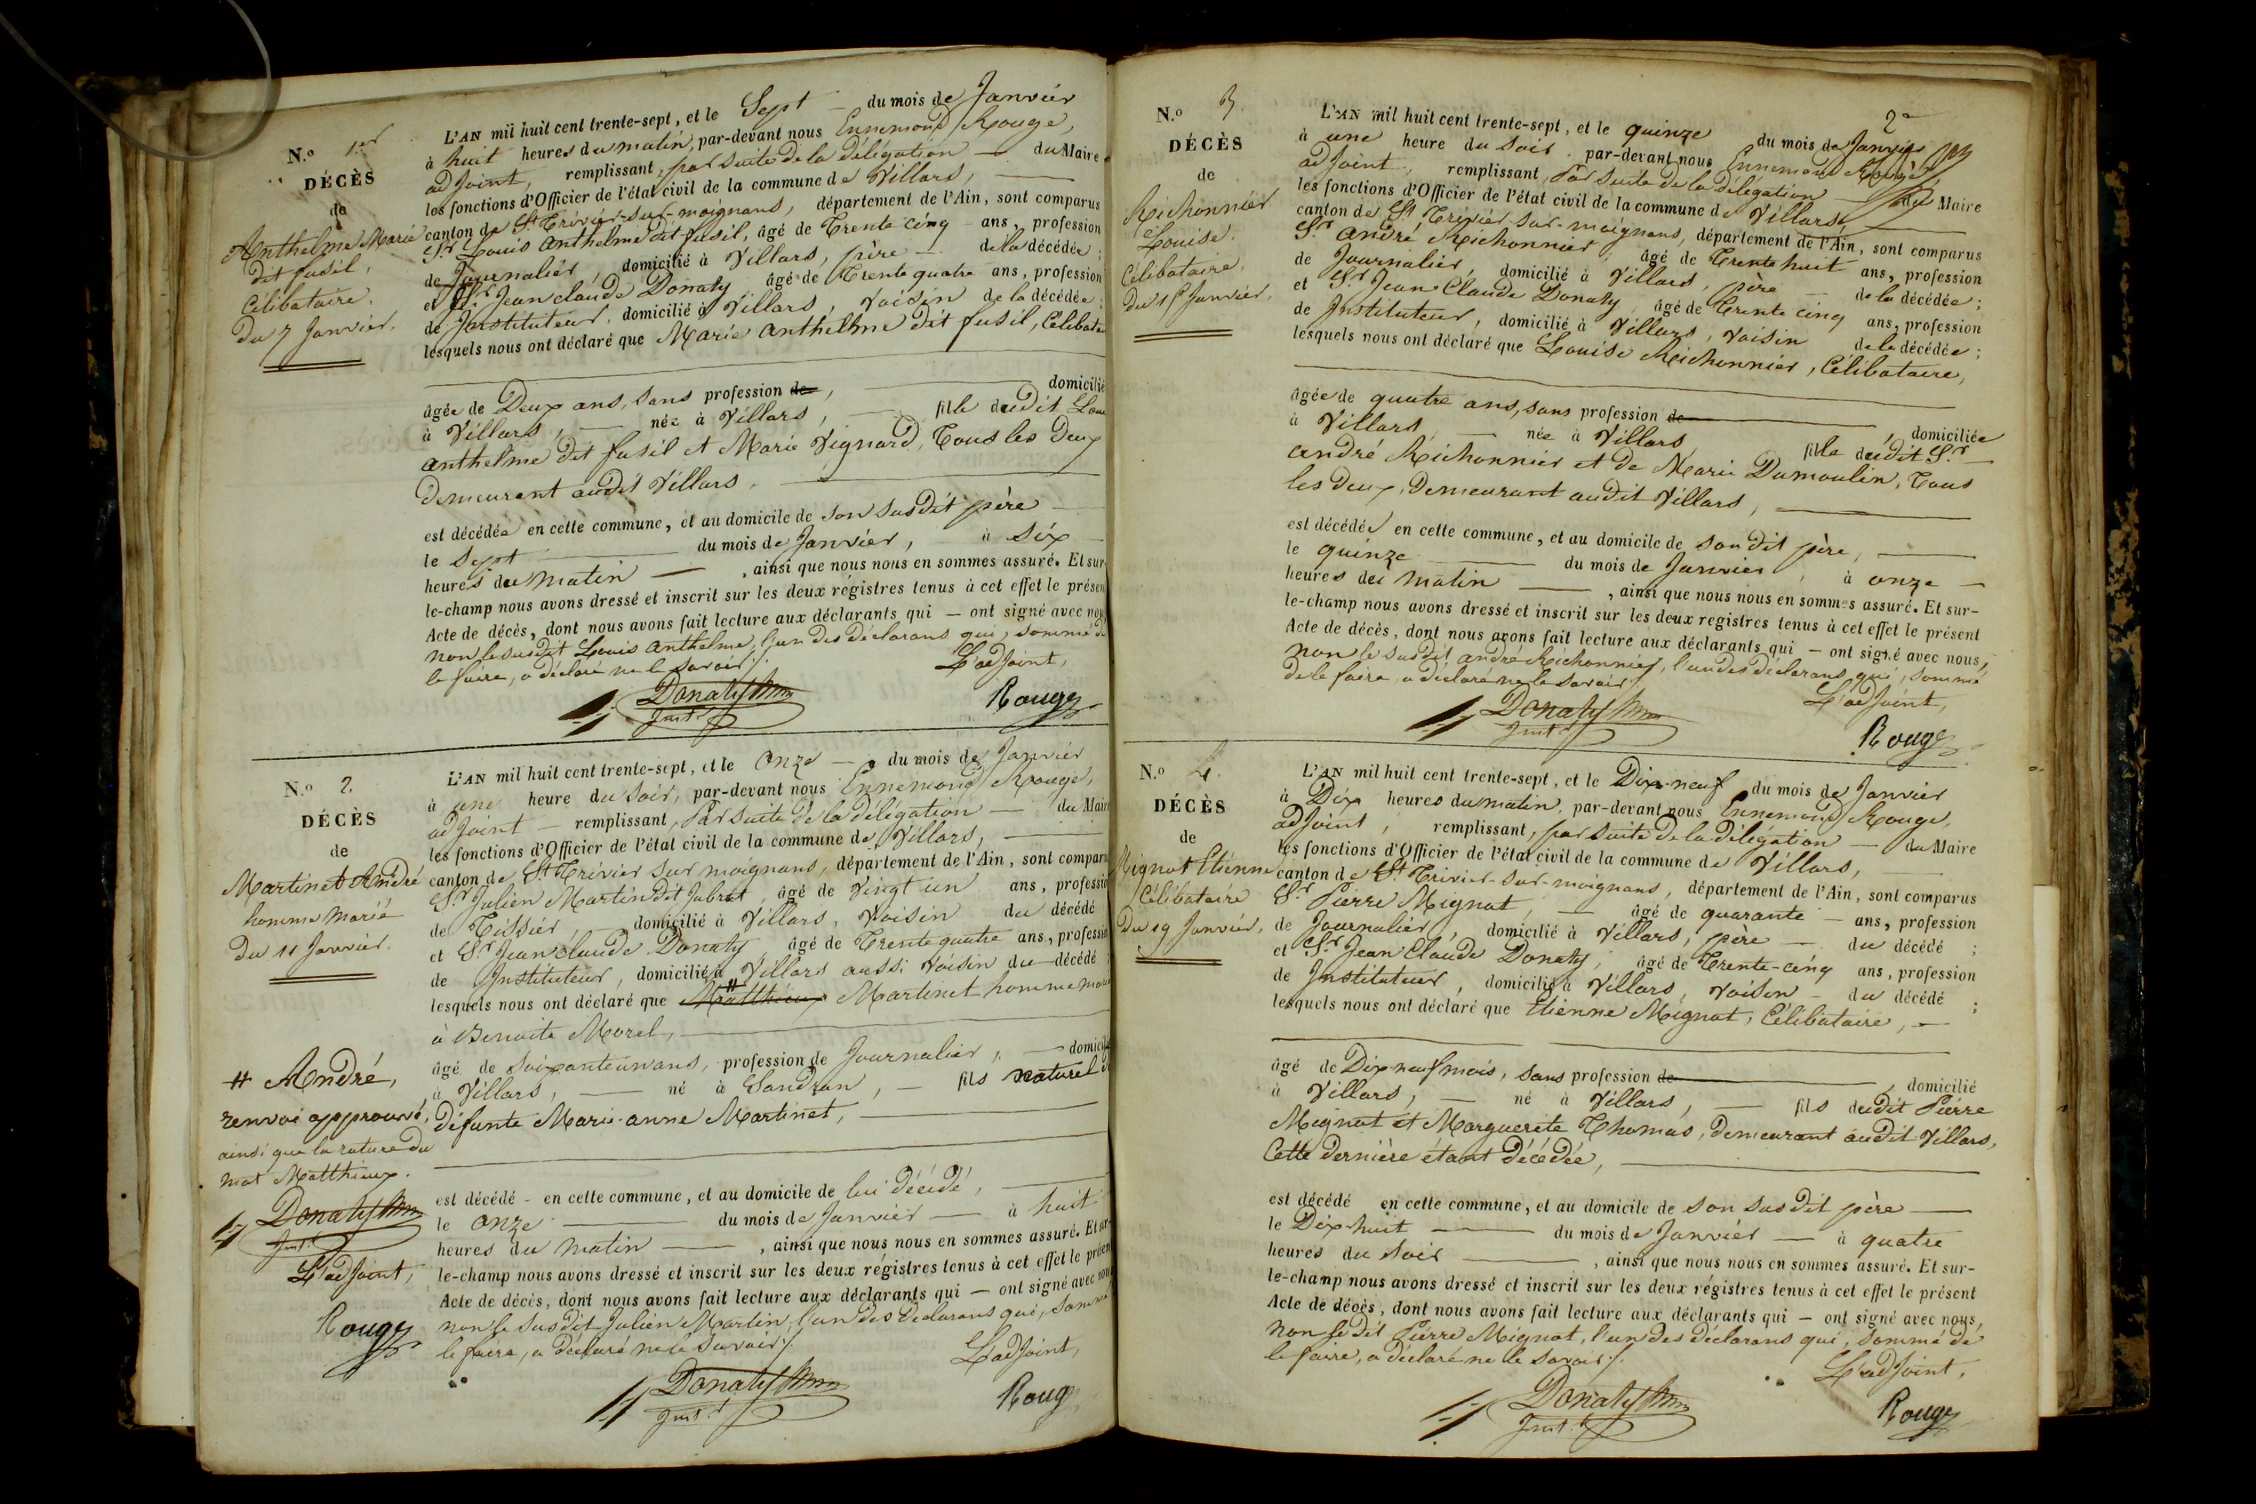 N.o 1er
DÉCÈS
de
Anthelme Marie
dit fusil,
Célibataire.
Du 7 Janvier.
L'AN mil huit cent trente-sept, et le Sept — du mois de Janvier
à huit heures du matin, par-devant nous Ennemond Rouge,
adjoint, remplissant, par suite de la délégation — du Maire
les fonctions d'Officier de l'état civil de la commune de Villars,
canton de St Trivier-sur-moignans, département de l'Ain, sont comparus
Sr. Louis anthelme dit fusil, âgé de Trente cinq ans, profession
de Journalier, domicilié à Villars, père — de la décédée;
et Sr. Jean claude Donaty âgé de Trente quatre ans, profession
de Instituteur, domicilié à Villars, voisin de la décédée;
lesquels nous ont déclaré que Marie anthelme dit fusil, Célibatai
âgée de Deux ans, sans profession de, domicilié
à Villars, — née à Villars, — fille dudit Loui
anthelme dit fusil et Marie Vignard, Tous les Deux
Demeurant audit Villars.
est décédée en cette commune, et au domicile de son susdit père
le sept — du mois de Janvier, — à six
heures du matin —, ainsi que nous nous en sommes assuré. Et sur-
le-champ nous avons dressé et inscrit sur les deux régistres tenus à cet effet le présen
Acte de décès, dont nous avons fait lecture aux déclarants qui — ont signé avec nou
non le susdit Louis anthelme, l'un des déclarans qui, sommé de
le faire, a déclaré ne le savoir /.
L'adjoint,
Donaty
Instr
Rouge
N.o 2.
DÉCÈS
de
Martinet André
homme marié
Du 11 Janvier.
# André,
renvoi approuvé,
ainsi que la rature du
mot Matthieux.
Donaty
Instr
L'adjoint,
Rouge
L'AN mil huit cent trente-sept, et le Onze — du mois de Janvier
à une heure du soir, par-devant nous Ennemond Rouge,
adjoint — remplissant, Par suite de la délégation — du Maire
les fonctions d'Officier de l'état civil de la commune de Villars,
canton de St Trivier sur moignans, département de l'Ain, sont comparu
Sr Julien Martin dit Jubret, âgé de Vingt un ans, professio
de Tissier, domicilié à Villars, Voisin du décédé
et Sr Jean claude Donaty âgé de Trente quatre ans, professio
de Instituteur, domicilié à Villars aussi Voisin du décédé
lesquels nous ont déclaré que # Matthieux Martinet homme mari
à Benoite Morel,
âgé de soixante un ans, profession de Journalier, — domicil
à Villars, — né à Sandran, — fils naturel de
défunte Marie-anne Martinet,
est décédé - en cette commune, et au domicile de lui décédé,
le onze — du mois de Janvier — à huit
heures du matin —, ainsi que nous nous en sommes assuré. Et sur-
le-champ nous avons dressé et inscrit sur les deux régistres tenus à cet effet le présen
Acte de décès, dont nous avons fait lecture aux déclarants qui — ont signé avec nous
non le susdit Julien Martin, l'un des déclarans qui, sommé
le faire, a déclaré ne le savoir /.
L'adjoint,
Donaty
Instr
Roug
2e
N.o 3.
DÉCÈS
de
Richonnier
Louise.
Célibataire.
Du 15 Janvier.
L'AN mil huit cent trente-sept, et le quinze du mois de Janvier
à une heure du soir, par-devant nous Ennemond Rouge,
adjoint, remplissant, Par suite de la délégation — du Maire
les fonctions d'Officier de l'état civil de la commune de Villars,
canton de St Trivier sur-moignans, département de l'Ain, sont comparus
Sr. andré Richonnier, âgé de Trente huit ans, profession
de Journalier, domicilié à Villars, père — de la décédée;
et Sr Jean Claude Donaty âgé de Trente cinq ans, profession
de Instituteur, domicilié à Villars, voisin de la décédée;
lesquels nous ont déclaré que Louise Richonnier, Célibataire,
âgée de quatre ans, sans profession de, domiciliée
à Villars, — née à Villars, fille dudit Sr —
andré Richonnier et de Marie Dumoulin, Tous
les deux, Demeurant audit Villars,
est décédée en cette commune, et au domicile de son dit père,
le quinze — du mois de Janvier, à onze —
heures du matin —, ainsi que nous nous en sommes assuré. Et sur-
le-champ nous avons dressé et inscrit sur les deux registres tenus à cet effet le présent
Acte de décès, dont nous avons fait lecture aux déclarants qui — ont signé avec nous,
non le susdit andré Richonnier, l'un des déclarans qui, sommé
de le faire, a déclaré ne le savoir /.
L'adjoint,
Donaty
Instr
Rouge
N.o 4.
DÉCÈS
de
Mignat Etienne
Célibataire
Du 19 Janvier,
L'AN mil huit cent trente-sept, et le Dix-neuf du mois de Janvier
à Dix heures du matin, par-devant nous Ennemond Rouge,
adjoint, remplissant, par suite de la délégation — du Maire
les fonctions d'Officier de l'état civil de la commune de Villars,
canton de St. Trivier-sur-moignans, département de l'Ain, sont comparus
Sr. Pierre Mignat, — âgé de quarante — ans, profession
de Journalier, domicilié à Villars, père — du décédé;
et Sr Jean Claude Donaty, âgé de Trente-cinq ans, profession
de Instituteur, domicilié à Villars, voisin — du décédé;
lesquels nous ont déclaré que Etienne Mignat, Célibataire, —
âgé de Dix neuf mois, sans profession de, domicilié
à Villars, — né à Villars, — fils dudit Pierre
Mignat et Marguerite Thomas, demeurant audit Villars,
Cette dernière étant décédée,
est décédé en cette commune, et au domicile de son susdit père —
le Dix-huit — du mois de Janvier — à quatre
heures du soir —, ainsi que nous nous en sommes assuré. Et sur-
le-champ nous avons dressé et inscrit sur les deux régistres tenus à cet effet le présent
Acte de décès, dont nous avons fait lecture aux déclarants qui — ont signé avec nous,
Non le dit Pierre Mignat, l'un des déclarans qui, sommé de
le faire, a déclaré ne le savoir /.
L'adjoint,
Donaty
Instr
Rouge